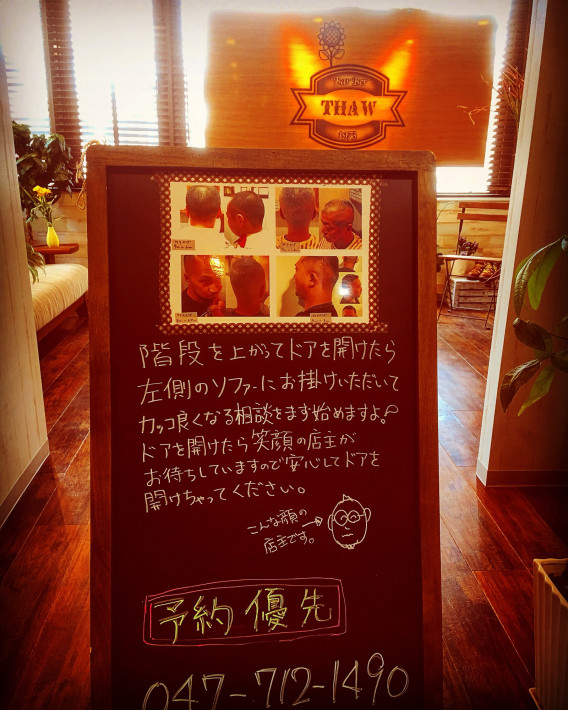 Bar Ber
THAW
階段を上がってドアを開けたら
左側のソファーにお掛けいただいて
カッコ良くなる相談をまず始めますよ。
ドアを開けたら笑顔の店主が
お待ちしていますので安心してドアを
開けちゃってください。
こんな顔の
店主です。
予約優先
047-712-1490